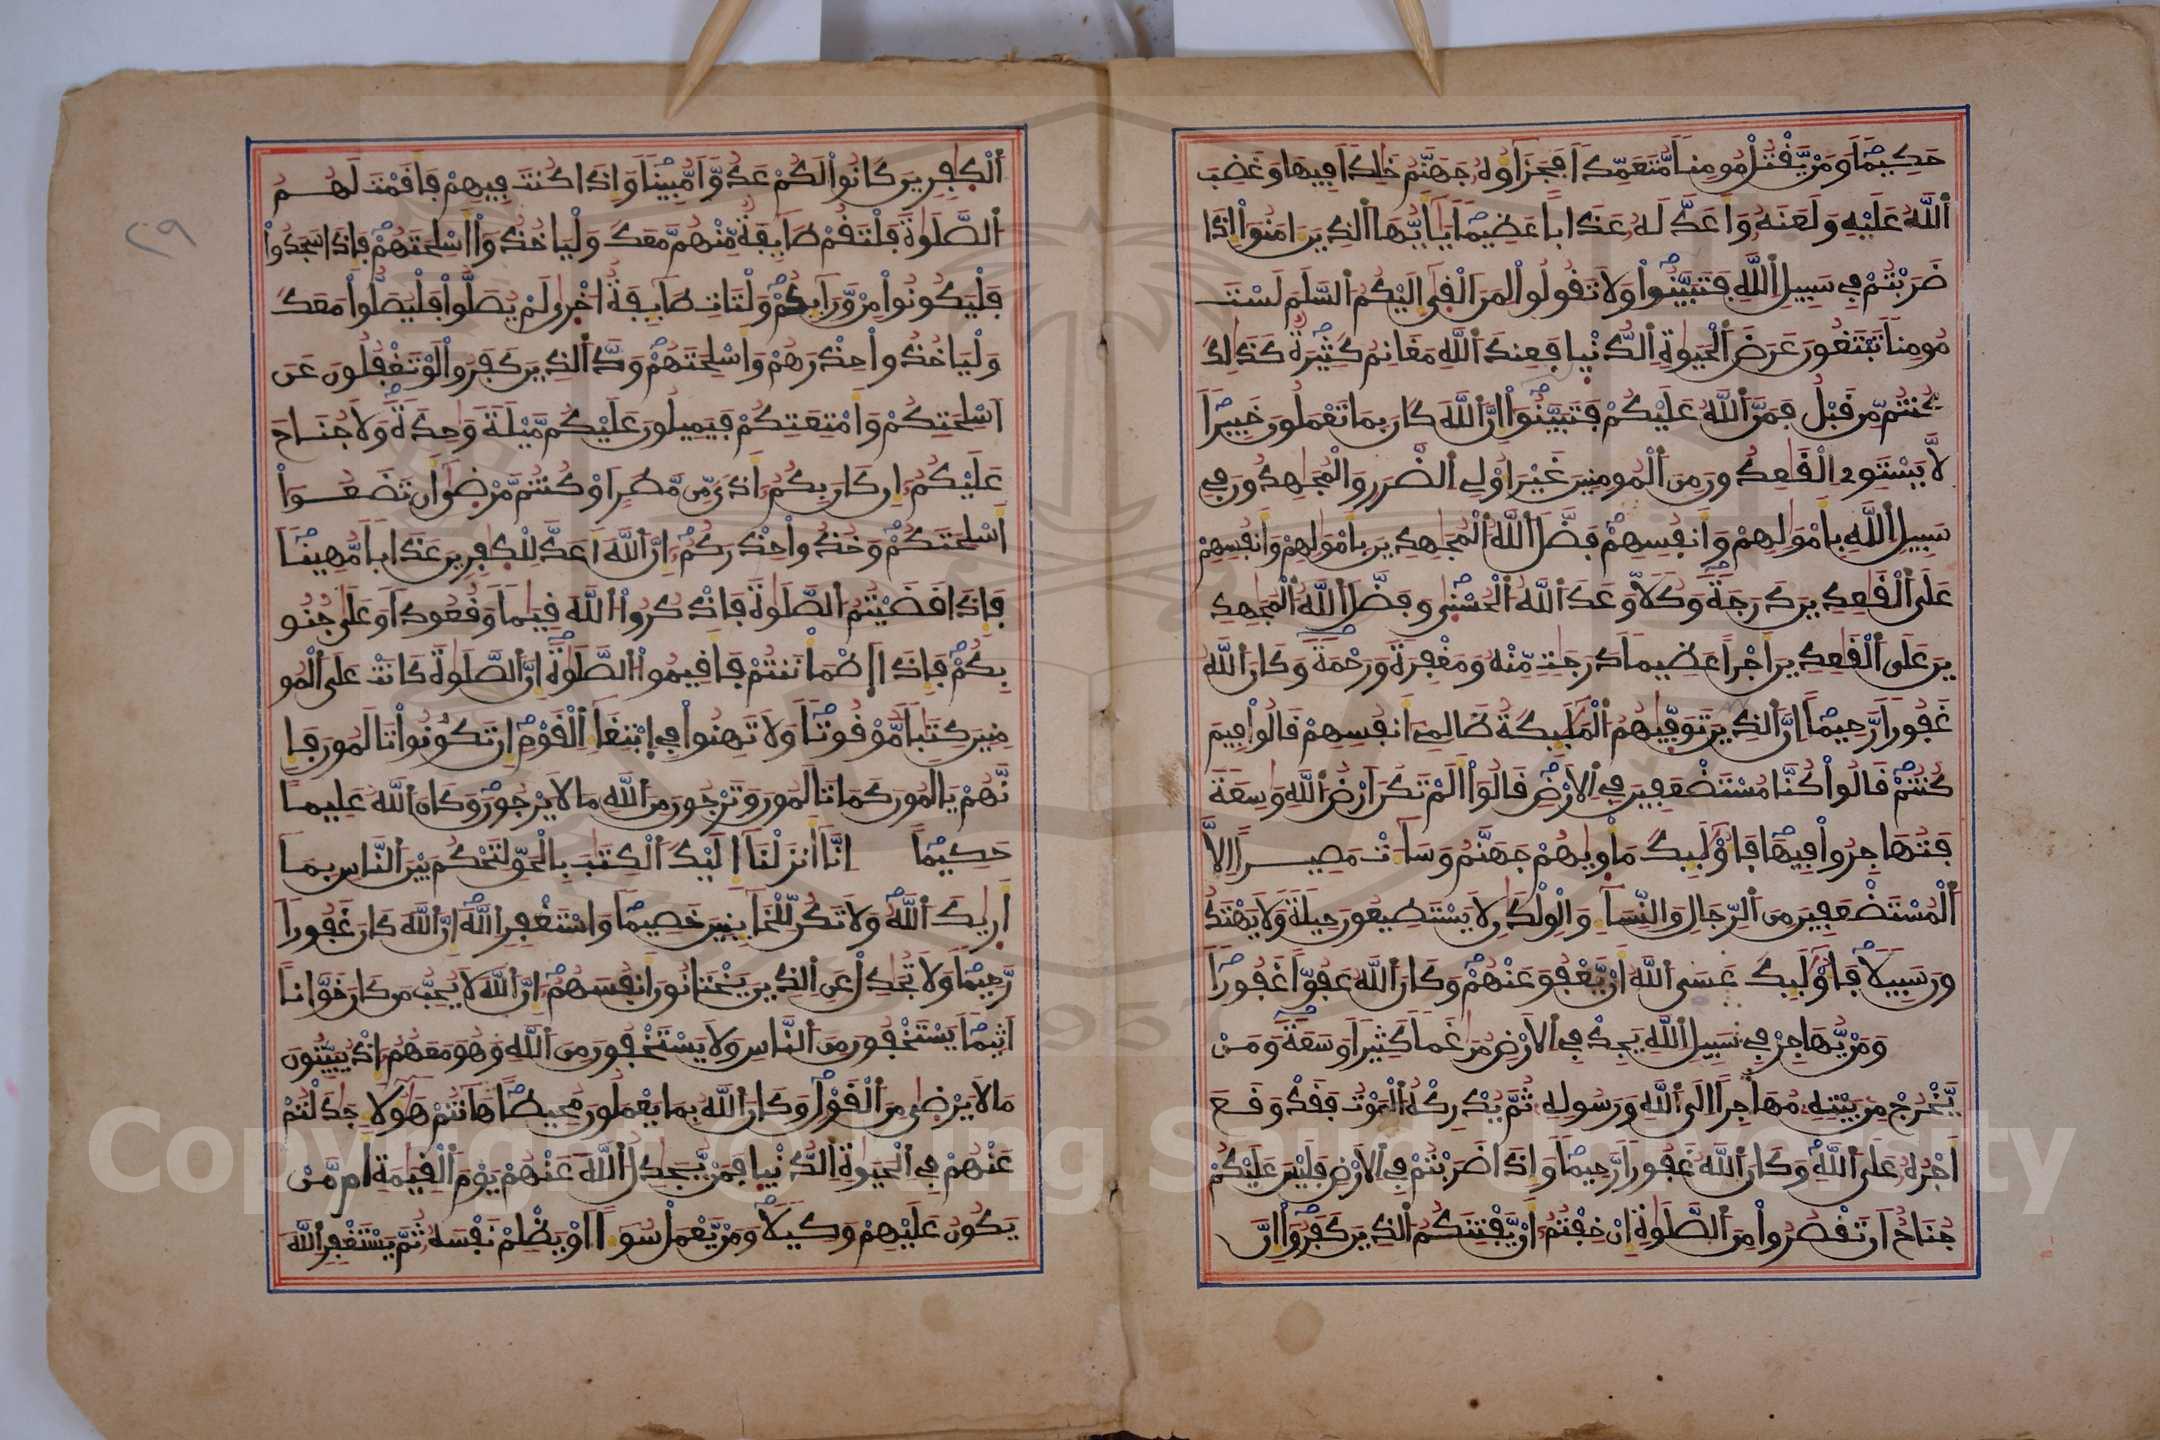 حَكِيمًا وَمَنْ يَّقْتُلْ مُومِنًا مُّتَعَمِّدًا فَجَزَآؤُهُ جَهَنَّمُ خَٰلِدًا فِيهَا وَغَضِبَ
اَللَّهُ عَلَيْهِ وَلَعَنَهُ وَأَعَدَّ لَهُ عَذَابًا عَظِيمًا يَٰٓأَيُّهَا اَلذِينَ ءَامَنُوٓاْ إِذَا
ضَرَبْتُمْ فِي سَبِيلِ اِللَّهِ فَتَبَيَّنُواْ وَلَا تَقُولُواْ لِمَنَ اَلْقَىٰٓ إِلَيْكُمُ اُلسَّلَمَ لَسْتَ
مُومِنًا تَبْتَغُونَ عَرَضَ اَلْحَيَوٰةِ اِلدُّنْيَا فَعِندَ اَللَّهِ مَغَانِمُ كَثِيرَةٌ كَذَٰلِكَ
كُنتُم مِّن قَبْلُ فَمَنَّ اَللَّهُ عَلَيْكُمْ فَتَبَيَّنُوٓاْ إِنَّ اَللَّهَ كَانَ بِمَا تَعْمَلُونَ خَبِيرًا
لَّا يَسْتَوِي اِلْقَٰعِدُونَ مِنَ اَلْمُومِنِينَ غَيْرَ أُوْلِي اِلضَّرَرِ وَالْمُجَٰهِدُونَ فِي
سَبِيلِ اِللَّهِ بِأَمْوَٰلِهِمْ وَأَنفُسِهِمْ فَضَّلَ اَللَّهُ اُلْمُجَٰهِدِينَ بِأَمْوَٰلِهِمْ وَأَنفُسِهِمْ
عَلَى اَلْقَٰعِدِينَ دَرَجَةً وَكُلًّا وَعَدَ اَللَّهُ اُلْحُسْنَىٰ وَفَضَّلَ اَللَّهُ اُلْمُجَٰهِدِ
ينَ عَلَى اَلْقَٰعِدِينَ أَجْرًا عَظِيمًا دَرَجَٰتٍ مِّنْهُ وَمَغْفِرَةً وَرَحْمَةً وَكَانَ اَللَّهُ
غَفُورًا رَّحِيمًا إِنَّ اَلذِينَ تَوَفَّيٰهُمُ اُلْمَلَٰٓئِكَةُ ظَالِمِيٓ أَنفُسِهِمْ قَالُواْ فِيمَ
كُنتُمْ قَالُواْ كُنَّا مُسْتَضْعَفِينَ فِي اِلْأَرْضِ قَالُوٓاْ أَلَمْ تَكُنَ اَرْضُ اُللَّهِ وَٰسِعَةً
فَتُهَاجِرُواْ فِيهَا فَأُوْلَٰٓئِكَ مَأْوٰيهُمْ جَهَنَّمُ وَسَآءَتْ مَصِيرًا اِلَّا
اَلْمُسْتَضْعَفِينَ مِنَ اَلرِّجَالِ وَالنِّسَآءِ وَالْوِلْدَٰنِ لَا يَسْتَطِيعُونَ حِيلَةً وَلَا يَهْتَدُ
ونَ سَبِيلًا فَأُوْلَٰٓئِكَ عَسَى اَللَّهُ أَنْ يَّعْفُوَ عَنْهُمْ وَكَانَ اَللَّهُ عَفُوًّا غَفُورًا
وَمَنْ يُّهَاجِرْ فِي سَبِيلِ اِللَّهِ يَجِدْ فِي اِلْأَرْضِ مُرَٰغَمًا كَثِيرًا وَسَعَةً وَمَنْ
يَّخْرُجْ مِنْ بَيْتِهِ مُهَاجِرًا اِلَى اَللَّهِ وَرَسُولِهِ ثُمَّ يُدْرِكْهُ اُلْمَوْتُ فَقَدْ وَقَعَ
أَجْرُهُ عَلَى اَللَّهِ وَكَانَ اَللَّهُ غَفُورًا رَّحِيمًا وَإِذَا ضَرَبْتُمْ فِي اِلْأَرْضِ فَلَيْسَ عَلَيْكُمْ
جُنَاحٌ اَن تَقْصُرُواْ مِنَ اَلصَّلَوٰةِ إِنْ خِفْتُمُ أَنْ يَّفْتِنَكُمُ اُلذِينَ كَفَرُوٓاْ إِنَّ
اَلْكَٰفِرِينَ كَانُواْ لَكُمْ عَدُوًّا مُّبِينًا وَإِذَا كُنتَ فِيهِمْ فَأَقَمْتَ لَهُمُ
اُلصَّلَوٰةَ فَلْتَقُمْ طَآئِفَةٌ مِّنْهُم مَّعَكَ وَلْيَاخُذُوٓاْ أَسْلِحَتَهُمْ فَإِذَا سَجَدُواْ
فَلْيَكُونُواْ مِنْ وَّرَآئِكُمْ وَلْتَاتِ طَآئِفَةٌ اُخْرَىٰ لَمْ يُصَلُّواْ فَلْيُصَلُّواْ مَعَكَ
وَلْيَاخُذُواْ حِذْرَهُمْ وَأَسْلِحَتَهُمْ وَدَّ اَلذِينَ كَفَرُواْ لَوْ تَغْفُلُونَ عَنَ
اَسْلِحَتِكُمْ وَأَمْتِعَتِكُمْ فَيَمِيلُونَ عَلَيْكُم مَّيْلَةً وَٰحِدَةً وَلَا جُنَاحَ
عَلَيْكُمُ إِن كَانَ بِكُمُ أَذًى مِّن مَّطَرٍ اَوْ كُنتُم مَّرْضَىٰٓ أَن تَضَعُوٓاْ
أَسْلِحَتَكُمْ وَخُذُواْ حِذْرَكُمُ إِنَّ اَللَّهَ أَعَدَّ لِلْكَٰفِرِينَ عَذَابًا مُّهِينًا
فَإِذَا قَضَيْتُمُ اُلصَّلَوٰةَ فَاذْكُرُواْ اُللَّهَ قِيَٰمًا وَقُعُودًا وَعَلَىٰ جُنُو
بِكُمْ فَإِذَا اَطْمَأْنَنتُمْ فَأَقِيمُواْ اُلصَّلَوٰةَ إِنَّ اَلصَّلَوٰةَ كَانَتْ عَلَى اَلْمُو
مِنِينَ كِتَٰبًا مَّوْقُوتًا وَلَا تَهِنُواْ فِي اِبْتِغَآءِ اِلْقَوْمِ إِن تَكُونُواْ تَالَمُونَ فَإِ
نَّهُمْ يَالَمُونَ كَمَا تَالَمُونَ وَتَرْجُونَ مِنَ اَللَّهِ مَا لَا يَرْجُونَ وَكَانَ اَللَّهُ عَلِيمًا
حَكِيمًا إِنَّآ أَنزَلْنَآ إِلَيْكَ اَلْكِتَٰبَ بِالْحَقِّ لِتَحْكُمَ بَيْنَ اَلنَّاسِ بِمَآ
أَرَىٰكَ اَللَّهُ وَلَا تَكُن لِّلْخَآئِنِينَ خَصِيمًا وَاسْتَغْفِرِ اِللَّهَ إِنَّ اَللَّهَ كَانَ غَفُورًا
رَّحِيمًا وَلَا تُجَٰدِلْ عَنِ اِلذِينَ يَخْتَانُونَ أَنفُسَهُمُ إِنَّ اَللَّهَ لَا يُحِبُّ مَن كَانَ خَوَّانًا
اَثِيمًا يَسْتَخْفُونَ مِنَ اَلنَّاسِ وَلَا يَسْتَخْفُونَ مِنَ اَللَّهِ وَهُوَ مَعَهُمُ إِذْ يُبَيِّتُونَ
مَا لَا يَرْضَىٰ مِنَ اَلْقَوْلِ وَكَانَ اَللَّهُ بِمَا يَعْمَلُونَ مُحِيطًا هَٰٓأَنتُمْ هَٰٓؤُلَآءِ جَٰدَلْتُمْ
عَنْهُمْ فِي اِلْحَيَوٰةِ اِلدُّنْيَا فَمَنْ يُّجَٰدِلُ اُللَّهَ عَنْهُمْ يَوْمَ اَلْقِيَٰمَةِ أَم مَّنْ
يَكُونُ عَلَيْهِمْ وَكِيلًا وَمَنْ يَّعْمَلْ سُوٓءًا اَوْ يَظْلِمْ نَفْسَهُ ثُمَّ يَسْتَغْفِرِ اِللَّهَ
٢٩
Copyright © King Saud University
1957